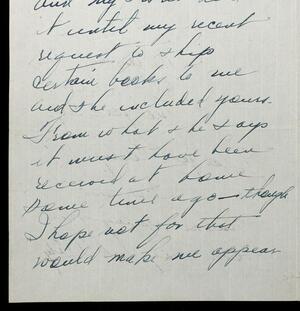 and my
it until my recent
request to ship
certain books to me
and she included yours.
From what she says
it must have been
received at home
some time ago — though
I hope not for that
would make me appear